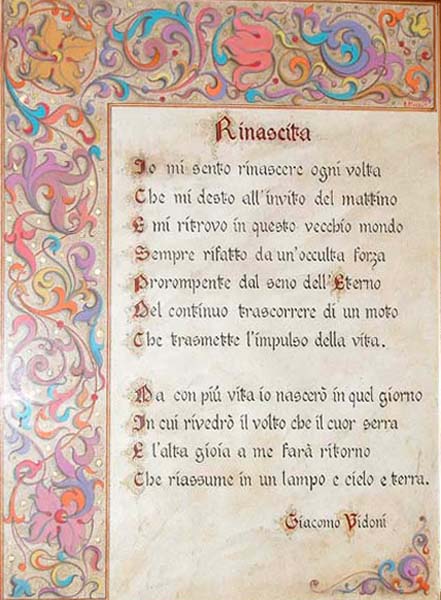 Rinascita
Io mi sento rinascere ogni volta
Che mi desto all'invito del mattino
E mi ritrovo in questo vecchio mondo
Sempre rifatto da un'occulta forza
Prorompente dal seno dell'Eterno
Nel continuo trascorrere di un moto
Che trasmette l'impulso della vita.
Ma con più vita io nascerò in quel giorno
In cui rivedrò il volto che il cuor serra
E l'alta gioia a me farà ritorno
Che riassume in un lampo e cielo e terra.
Giacomo Vidoni